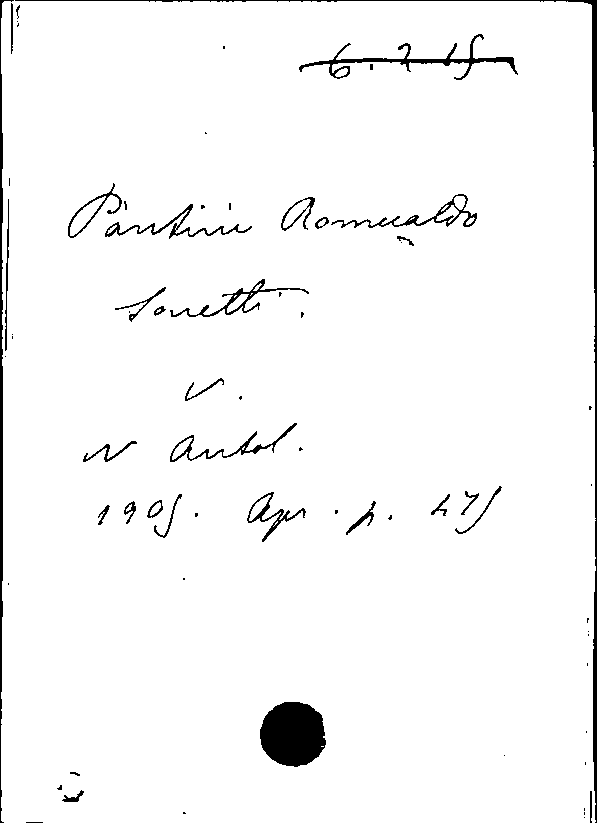 6. 2 15
Pàntini Romualdo
Sonetti.
V.
N Antol.
1905. Apr. p. 475